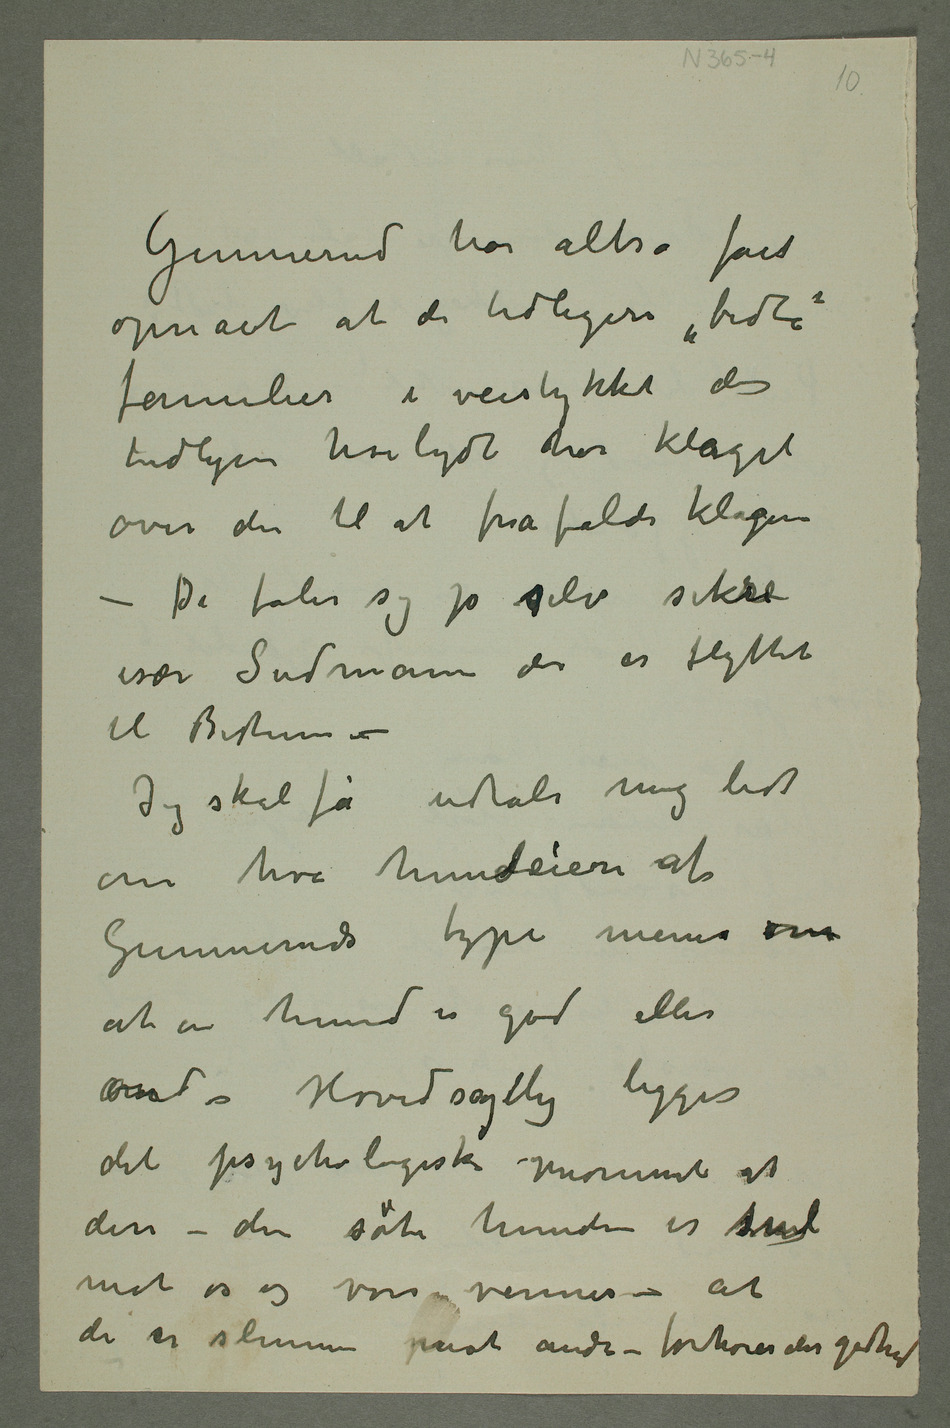 N 365-4
10
Gunnerud har altså fåt
opnået at de tidligere „bidte“
familier i veistykket der
tidligere høilydt har klaget
over den til at frafalde klagen
– De føler sig jo selv sikre
især Sudmann der er flyttet
til Bestum –
Jeg skal få udtale mig lidt
om hva hundeiere af
Gunneruds type mener om
at en hund er god eller
ond – Hovedsagelig ligger
det psychologiske moment at
den – den søte hunden er snil
mot os og vore venner – at
de er slemme mot andre – forhøier der godhed